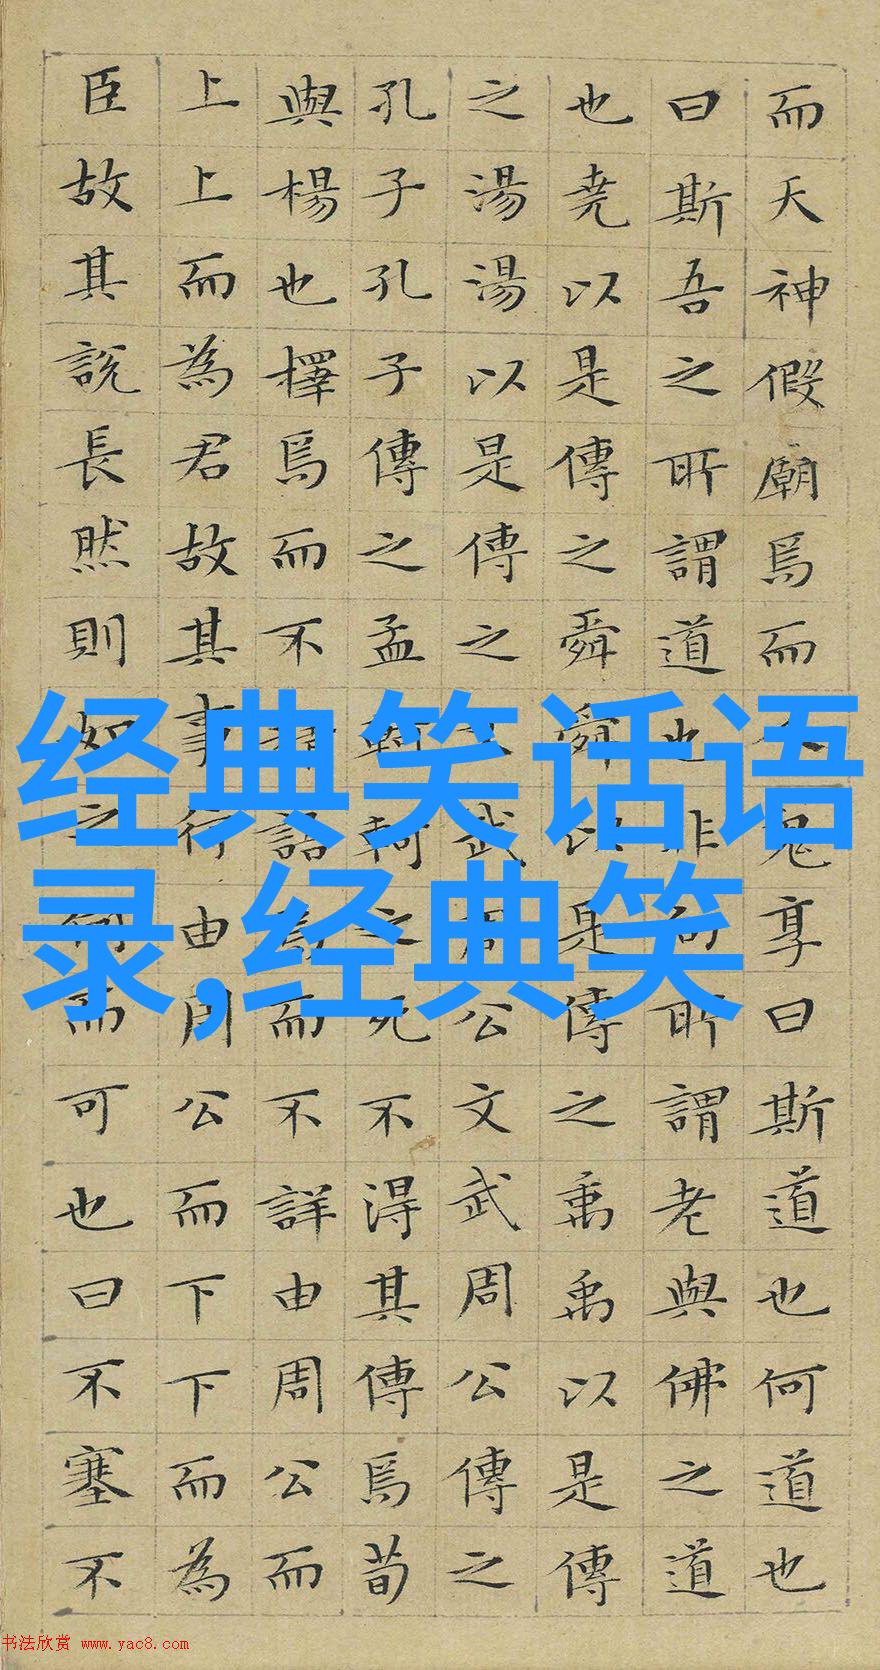 而天神假廟焉而鬼享曰斯道也何道也
曰斯吾之所謂道也非向所謂老與佛之道
也堯以是傳之舜舜以是傳之禹禹以是傳
之湯湯以是傳之武周公文武周公傳之
孔子孔子傳之孟軻軻之死不得其傳焉荀
與楊也擇焉而不語焉而不詳由周公而
上上而為君故其事行由周公而下下而為
臣故其說長然則如之何而可也曰不塞不
经典笑话语
录,经典笑
书法欣赏 www.yac8.com